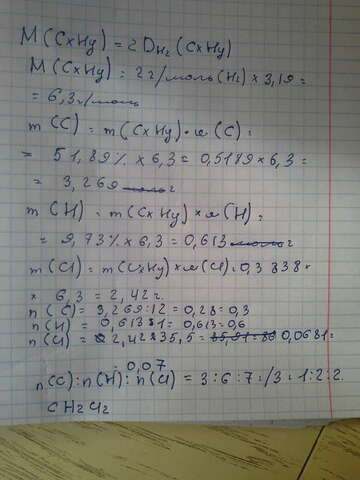 M(CxHy) = 2 DH2(CxHy)
M(CxHy) = 2 г/моль(H2) × 3,19 =
= 6,3 г/моль
m(C) = m(CxHy)·w(C) =
= 51,89% × 6,3 = 0,5189 × 6,3 =
= 3,269 г
m(H) = m(CxHy) × w(H) =
= 9,73% × 6,3 = 0,613 г
m(Cl) = m(CxHy) × w(Cl) = 0,3838 ×
× 6,3 = 2,42 г.
n(C) = 3,269:12 = 0,28 = 0,3
n(H) = 0,613:1 = 0,613 = 0,6
n(Cl) = 2,42:35,5 = 0,0681 =
= 0,07
n(C):n(H):n(Cl) = 3:6:7 = /3 = 1:2:2.
CH2Cl2